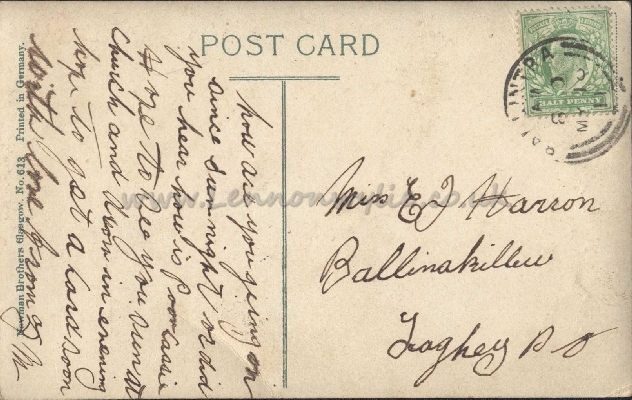 POST CARD
HALF PENNY
how are you going on
since sun night or did
you hear how is poor Cassie
Hope to see you sun at
church and down in evening
hope to get a card soon
with love from
Miss E J Harron
Ballinakillew
Laghey P O
Printed in Germany.
Brothers Glasgow. No. 613
www.Lennonwylie.co.uk